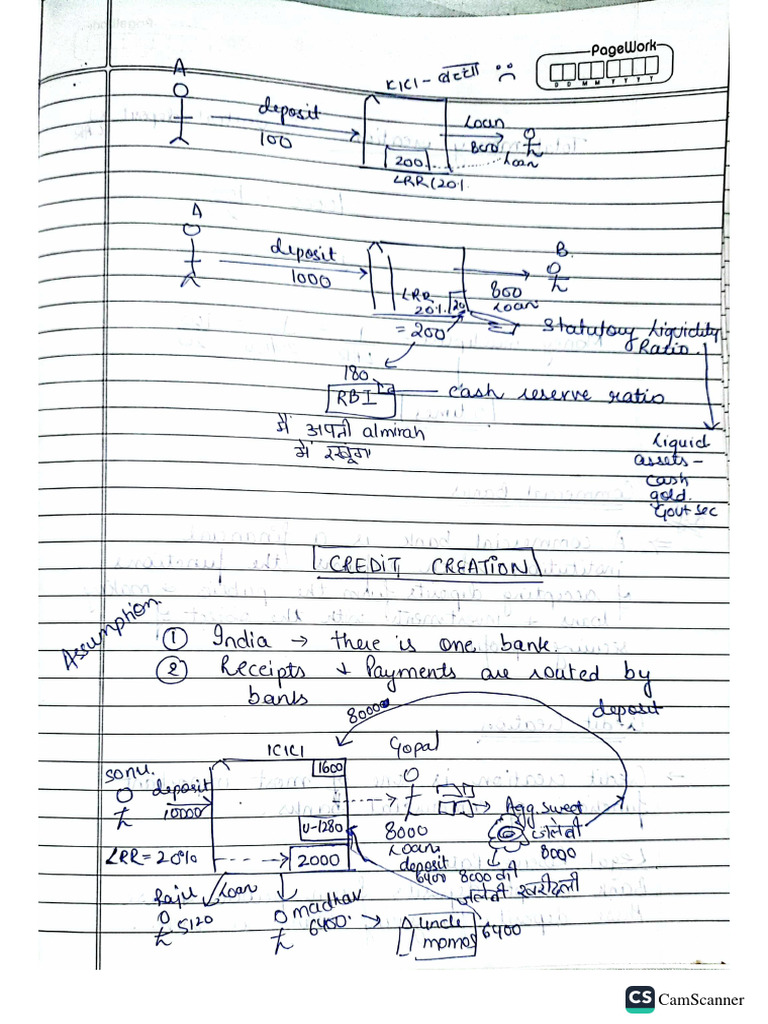 PageWork
D D M M Y Y Y Y
A
ICICI - बस्ता
deposit
100
Loan
800
200
Loan
LRR (20%
A
deposit
1000
LRR
20%
20
= 200
B.
800
Loan
Statutory Liquidity
Ratio.
180
RBI
Cash reserve ratio
मैं अपनी almirah
में रखूंगा
Liquid
assets -
cash
gold.
Govt sec
CREDIT CREATION
Assumption
① India → there is one bank
② Receipts & Payments are routed by
banks
80000
deposit
ICICI
Gopal
Sonu.
deposit
10000
1600
U-1280
2000
LRR = 20%
8000
Loan
deposit
6400
Agg. sweet
जलेबी
8000
8000 की
जलेबी खरीदली
Raju
Loan
5120
madhav
6400
uncle
momos
6400
CS CamScanner